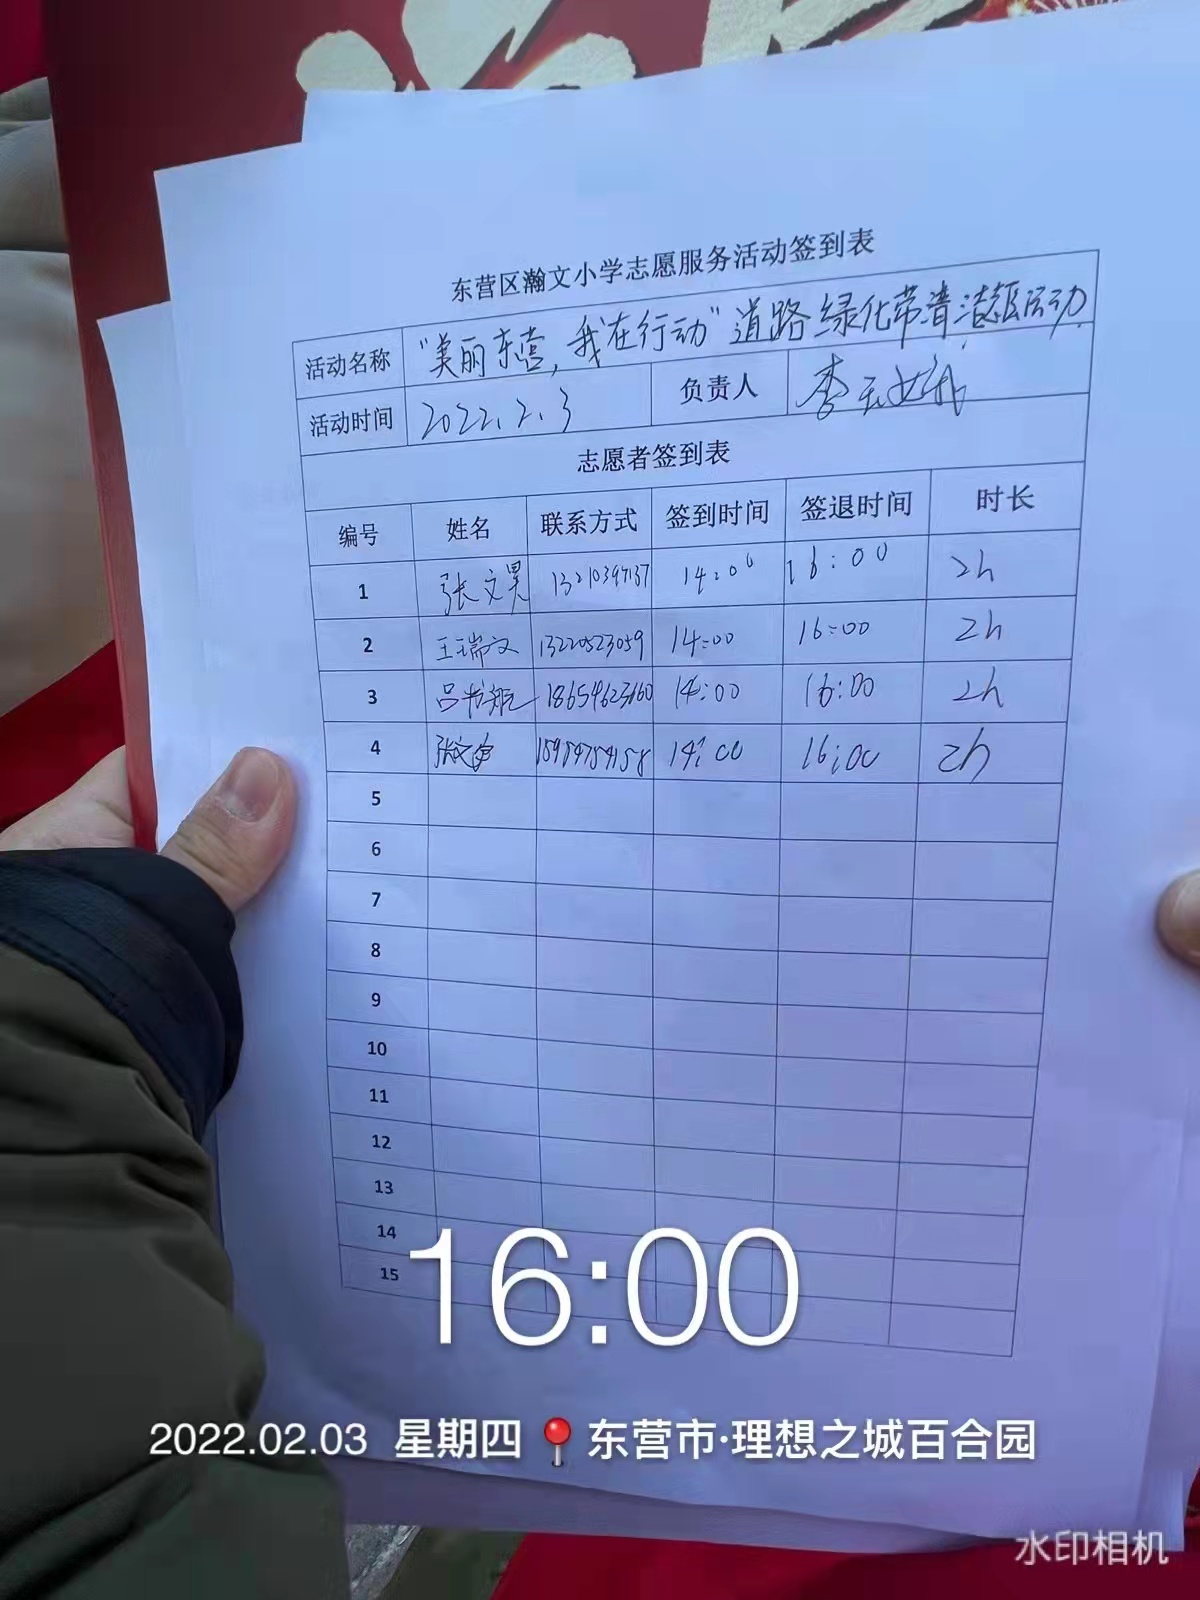 东营区瀚文小学志愿服务活动签到表
活动名称 "美丽东营,我在行动"道路绿化带清洁活动
活动时间 2022.2.3 负责人 李
志愿者签到表
编号 姓名 联系方式 签到时间 签退时间 时长
1 张文昊 13210397137 14:00 16:00 2h
2 王瑞文 13220523059 14:00 16:00 2h
3 吕 18654623160 14:00 16:00 2h
4 张文 15954754158 14:00 16:00 2h
5
6
7
8
9
10
11
12
13
14
15
16:00
2022.02.03 星期四 东营市·理想之城百合园
水印相机